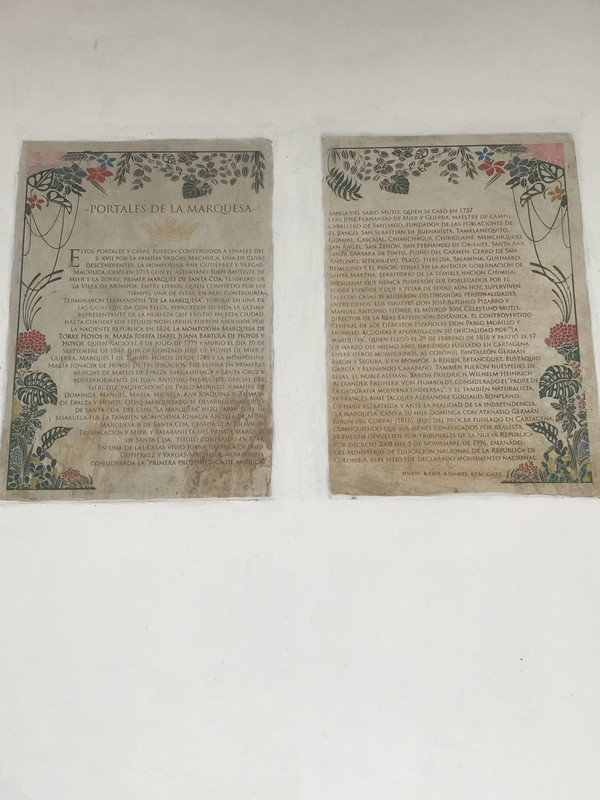 ~PORTALES DE LA MARQUESA~
ESTOS PORTALES Y CASAS, FUERON CONSTRUIDOS A FINALES DEL
S. XVII POR LA FAMILIA VARGAS-MACHUCA, UNA DE CUYAS
DESCENDIENTES, LA MOMPOXINA ANA GUTIÉRREZ Y VARGAS-
MACHUCA, CASÓ EN 1715 CON EL ASTURIANO JUAN BAUTISTA DE
MIER Y LA TORRE, PRIMER MARQUÉS DE SANTA COA, TESORERO DE
LA VILLA DE MOMPOX, ENTRE OTROS, QUIEN CONVIRTIÓ POR UN
TIEMPO, UNA DE ESTAS, EN REAL CONTADURÍA.
TERMINARON LLAMÁNDOSE "DE LA MARQUESA", PORQUE EN UNA DE
LAS CASAS QUE DA CON ELLOS, VIVIÓ TODA SU VIDA LA ÚLTIMA
REPRESENTANTE DE LA NOBLEZA QUE EXISTIÓ EN ESTA CIUDAD,
HASTA CUANDO LOS TÍTULOS NOBILIARIOS FUERON ABOLIDOS POR
LA NACIENTE REPÚBLICA EN 1824. LA MOMPOXINA MARQUESA DE
TORRE HOYOS II, MARÍA JOSEFA ISABEL JUANA BARTOLA DE HOYOS Y
HOYOS, QUIEN NACIÓ EL 8 DE JULIO DE 1779 Y MURIÓ EL DÍA 10 DE
SEPTIEMBRE DE 1848, HIJA DE GONZALO JOSÉ DE HOYOS DE MIER Y
GUERRA, MARQUÉS I DE TORRES HOYOS DESDE 1788 Y LA MOMPOXINA
MARÍA IGNACIA DE HOYOS DE TRESPALACIOS. FUE ESPOSA EN PRIMERAS
NUPCIAS DE MATEO DE EPALZA, SARGAMINAGA Y SANTA CRUZ Y
POSTERIORMENTE DE JUAN ANTONIO IMBRECHTS, OFICIAL DEL
EJÉRCITO "PACIFICADOR" DE PABLO MURILLO Y MADRE DE
DOMINGA, MANUEL, MARÍA MICAELA, ANA JOAQUINA Y TOMASA
DE EPALZA Y HOYOS. OTRO MARQUESADO SE DESARROLLÓ
DE SANTA COA, DEL CUAL "LA MARQUESA" HIZO PARTE,
BISABUELA FUE LA TAMBIÉN MOMPOXINA IGNACIA ANDREA DE
MARQUESA II DE SANTA COA, CASADA CON JULIÁN DE
TRESPALACIOS Y MIER, Y TATARANIETA DEL PRIMER MARQUÉS
DE SANTA COA, TÍTULO CONFERIDO EN 1744.
EN UNA DE LAS CASAS VIVIÓ JUANA BARTOLA DE MIER
GUTIÉRREZ Y VARGAS-MACHUCA, MOMPOXINA
CONSIDERADA LA "PRIMERA PROTOMÉDICA DE AMÉRICA",
AMIGA DEL SABIO MUTIS, QUIEN SE CASÓ EN 1757
CON JOSÉ FERNANDO DE MIER Y GUERRA, MAESTRE DE CAMPO,
CABALLERO DE SANTIAGO, FUNDADOR DE LAS POBLACIONES DE
EL BANCO, SAN SEBASTIÁN DE BUENAVISTA, TAMALAMEQUITO,
GUAMAL, CASCAJAL, CHIMICHAGUA, CHIRIGUANÁ, MENCHIQUEJO,
SAN ÁNGEL, SAN ZENÓN, SAN FERNANDO DE ORIENTE, SANTA ANA,
SANTA BÁRBARA DE PINTO, PUEBLO DEL CARMEN, CERRO DE SAN
ANTONIO, SITIONUEVO, PLATO, HEREDIA, SALAMINA, GUAIMARO,
REMOLINO Y EL PIÑÓN, TODAS EN LA ANTIGUA GOBERNACIÓN DE
SANTA MARTHA, TERRITORIO DE LA TEMIBLE NACIÓN CHIMILA,
INDÍGENAS QUE NUNCA PUDIERON SER DOBLEGADOS POR EL
PODER ESPAÑOL Y QUE A PESAR DE TODO, AÚN HOY, SUPERVIVEN
EN ESTAS CASAS SE ALOJARON DISTINGUIDAS PERSONALIDADES,
ENTRE ELLOS, LOS VIRREYES DON JOSÉ ALFONSO PIZARRO Y
MANUEL ANTONIO FLÓREZ, EL MÉDICO JOSÉ CELESTINO MUTIS,
DIRECTOR DE LA REAL EXPEDICIÓN BOTÁNICA, EL CONTROVERTIDO
GENERAL DE LOS EJÉRCITOS ESPAÑOLES DON PABLO MORILLO Y
MORILLO, ACOGIDO Y APOYADO CON SU OFICIALIDAD POR "LA
MARQUESA", QUIEN LLEGÓ EL 29 DE FEBRERO DE 1816 Y PARTIÓ EL 17
DE MARZO DEL MISMO AÑO, HABIENDO FUSILADO EN CARTAGENA
ENTRE OTROS MOMPOXINOS, AL CORONEL PANTALEÓN GERMÁN
RIBÓN Y SEGURA, Y EN MOMPOX, A ROQUE BETANCOURT, EUSTAQUIO
GARCÍA Y FERNANDO CARABAÑO. TAMBIÉN FUERON HUÉSPEDES DE
ELLAS, EL NOBLE ALEMÁN, BARÓN FRIEDRICH WILHELM HEINRICH
ALEXANDER FREIHERR VON HUMBOLDT, CONSIDERADO EL "PADRE DE
LA GEOGRAFÍA MODERNA UNIVERSAL" Y EL TAMBIÉN NATURALISTA
EL FRANCÉS AIMÉ JACQUES ALEXANDRE GOUJAUD BONPLAND.
EN HÁBIL ESTRATEGIA Y ANTE LA REALIDAD DE LA INDEPENDENCIA,
LA MARQUESA CASÓ A SU HIJA DOMINGA CON ATANASIO GERMÁN
RIBÓN DEL CORRAL (1818), HIJO DEL PRÓCER FUSILADO EN CARTAGENA
CONSIGUIENDO QUE SUS BIENES CONFISCADOS POR REALISTA,
LE FUERAN DEVUELTOS POR TRIBUNALES DE LA NUEVA REPÚBLICA
POR DECRETO 2008 DEL 5 DE NOVIEMBRE DE 1996, EMANADO
DEL MINISTERIO DE EDUCACIÓN NACIONAL DE LA REPÚBLICA DE
COLOMBIA, ESTE SITIO FUE DECLARADO MONUMENTO NACIONAL.